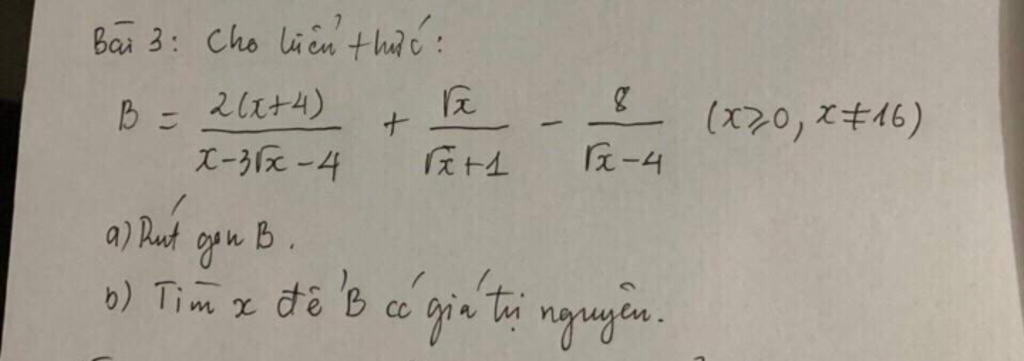 Bài 3: Cho biểu thức:
B = \frac{2(x+4)}{x-3\sqrt{x}-4} + \frac{\sqrt{x}}{\sqrt{x}+1} - \frac{8}{\sqrt{x}-4} (x⩾0, x≠16)
a) Rút gọn B.
b) Tìm x để B có giá trị nguyên.